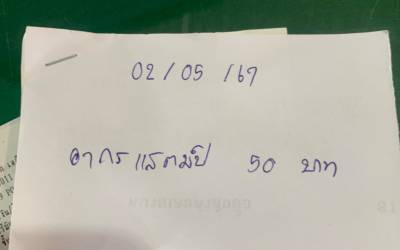 02/05/67
อากรแสตมป์ 50 บาท